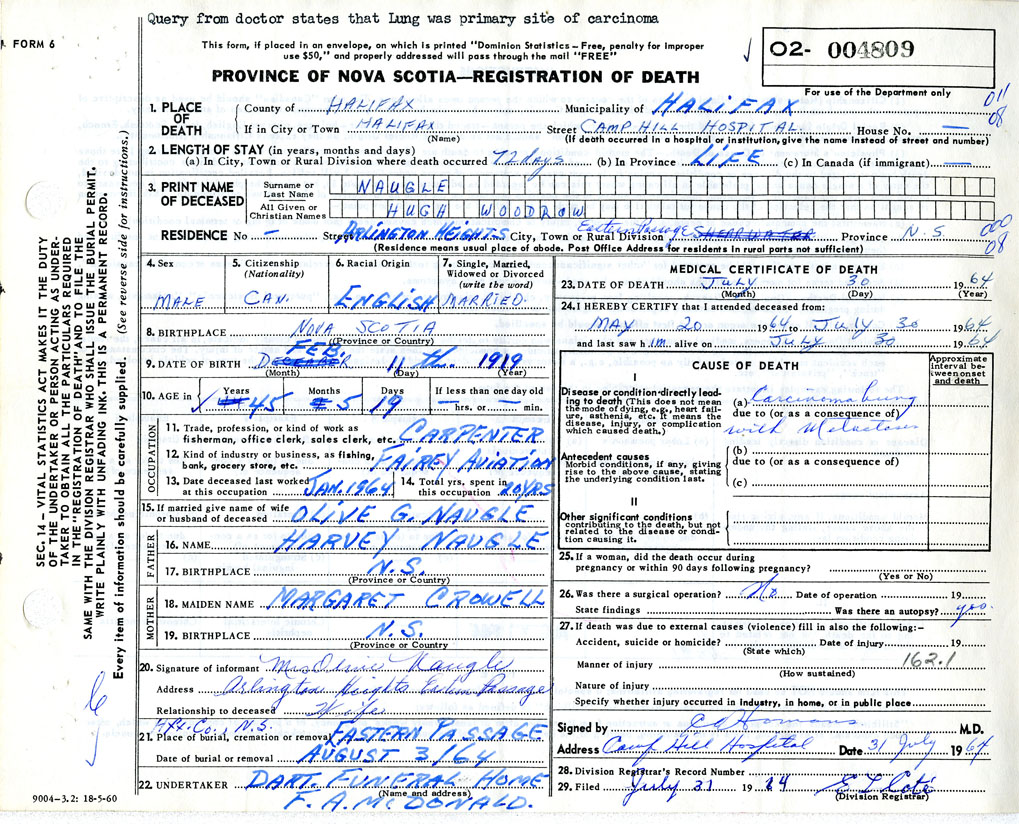 Query from doctor states that Lung was primary site of carcinoma
FORM 6
This form, if placed in an envelope, on which is printed "Dominion Statistics – Free, penalty for improper
use $50," and properly addressed will pass through the mail "FREE"
PROVINCE OF NOVA SCOTIA—REGISTRATION OF DEATH
O2- 004809
For use of the Department only
011
08
1. PLACE OF DEATH
County of HALIFAX Municipality of HALIFAX
If in City or Town HALIFAX Street CAMP HILL HOSPITAL House No. —
(Name) (If death occurred in a hospital or institution, give the name instead of street and number)
2. LENGTH OF STAY (in years, months and days)
(a) In City, Town or Rural Division where death occurred 72 days (b) In Province LIFE (c) In Canada (if immigrant) —
3. PRINT NAME OF DECEASED
Surname or Last Name NAUGLE
All Given or Christian Names HUGH WOODROW
RESIDENCE No — Street ARLINGTON HEIGHTS City, Town or Rural Division Eastern Passage SHEARWATER Province N.S
000
08
(Residence means usual place of abode. Post Office Address for residents in rural parts not sufficient)
4. Sex
MALE
5. Citizenship
(Nationality)
CAN.
6. Racial Origin
ENGLISH
7. Single, Married,
Widowed or Divorced
(write the word)
MARRIED.
8. BIRTHPLACE NOVA SCOTIA
(Province or Country)
FEB.
9. DATE OF BIRTH DECEMBER 11 th. 1919
(Month) (Day) (Year)
10. AGE in
Years 45
Months 5
Days 19
If less than one day old
hrs. or min.
OCCUPATION
11. Trade, profession, or kind of work as
fisherman, office clerk, sales clerk, etc. CARPENTER
12. Kind of industry or business, as fishing,
bank, grocery store, etc. FAIREY AVIATION
13. Date deceased last worked
at this occupation JAN. 1964
14. Total yrs. spent in
this occupation 20 YRS
15. If married give name of wife
or husband of deceased OLIVE G. NAUGLE
FATHER
16. NAME HARVEY NAUGLE
17. BIRTHPLACE N.S.
(Province or Country)
MOTHER
18. MAIDEN NAME MARGARET CROWELL
19. BIRTHPLACE N.S.
(Province or Country)
20. Signature of informant Mrs Olive Naugle
Address Arlington Heights Eastern Passage
Relationship to deceased Wife
Hfx. Co., N.S.
21. Place of burial, cremation or removal EASTERN PASSAGE
Date of burial or removal AUGUST 3/64
22. UNDERTAKER DART. FUNERAL HOME
(Name and address)
F. A. McDONALD.
9004–3.2: 18-5-60
MEDICAL CERTIFICATE OF DEATH
23. DATE OF DEATH July 30 1964
(Month) (Day) (Year)
24. I HEREBY CERTIFY that I attended deceased from:
MAY 20 1964 to JULY 30 1964
and last saw him alive on JULY 30 1964
CAUSE OF DEATH
Approximate
interval be-
tween onset
and death
I
Disease or condition directly lead-
ing to death (This does not mean
the mode of dying, e.g., heart fail-
ure, asthenia, etc. It means the
disease, injury, or complication
which caused death.)
(a) Carcinoma lung
due to (or as a consequence of)
with Metastasis
Antecedent causes
Morbid conditions, if any, giving
rise to the above cause, stating
the underlying condition last.
(b)
due to (or as a consequence of)
(c)
II
Other significant conditions
contributing to the death, but not
related to the disease or condi-
tion causing it.
25. If a woman, did the death occur during
pregnancy or within 90 days following pregnancy?
(Yes or No)
26. Was there a surgical operation? No Date of operation 19
State findings Was there an autopsy? yes
27. If death was due to external causes (violence) fill in also the following:–
Accident, suicide or homicide? Date of injury 19
(State which)
Manner of injury 162.1
(How sustained)
Nature of injury
Specify whether injury occurred in industry, in home, or in public place
Signed by M.D.
Address Camp Hill Hospital Date 31 July 1964
28. Division Registrar's Record Number
29. Filed July 31 1964
(Division Registrar)
SEC. 14 – VITAL STATISTICS ACT MAKES IT THE DUTY
OF THE UNDERTAKER OR PERSON ACTING AS UNDER-
TAKER TO OBTAIN ALL THE PARTICULARS REQUIRED
IN THE "REGISTRATION OF DEATH" AND TO FILE THE
SAME WITH THE DIVISION REGISTRAR WHO SHALL ISSUE THE BURIAL PERMIT.
WRITE PLAINLY WITH UNFADING INK. THIS IS A PERMANENT RECORD.
Every item of information should be carefully supplied. (See reverse side for instructions.)